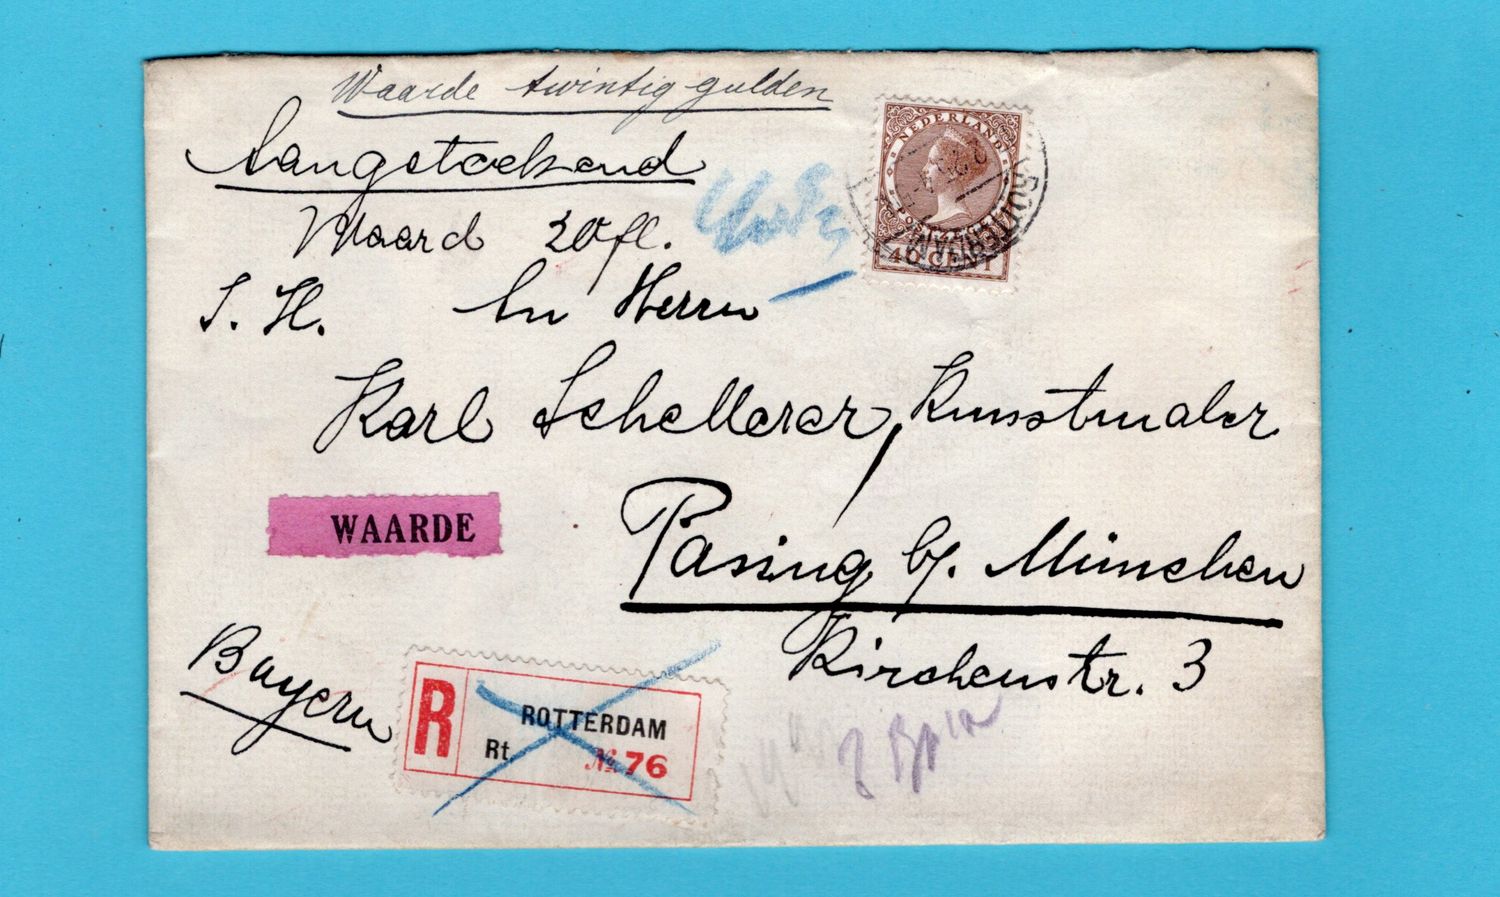 Waarde twintig gulden
Aangeteekend
Waard 20 fl.
NEDERLAND
POSTZEGEL
40 CENT
ROTTERDAM
S. H. An Herrn
Karl Schellerer, Kunstmaler
WAARDE
Pasing b/. München
Kirchenstr. 3
Bayern
R
ROTTERDAM
Rt № 76